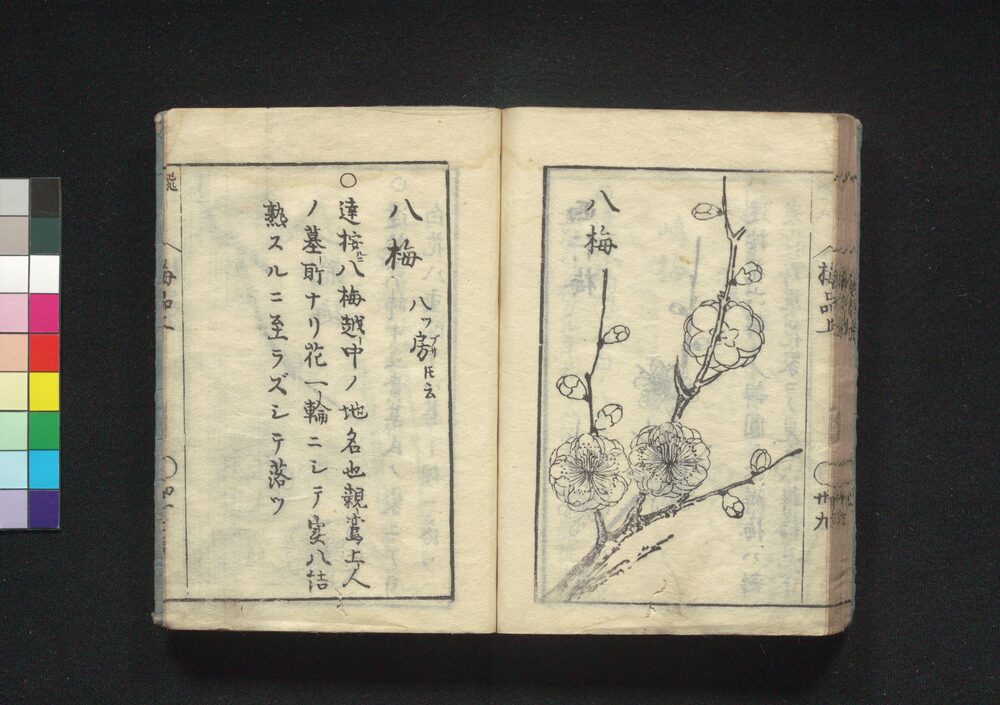 八梅
梅品上
廿九
八梅 八ツ房ブサ𪜈云
○達按ニ八梅越中ノ地名也親鸞上人
ノ墓所ナリ花一輪ニシテ実八結
熟スルニ至ラズシテ落ツ